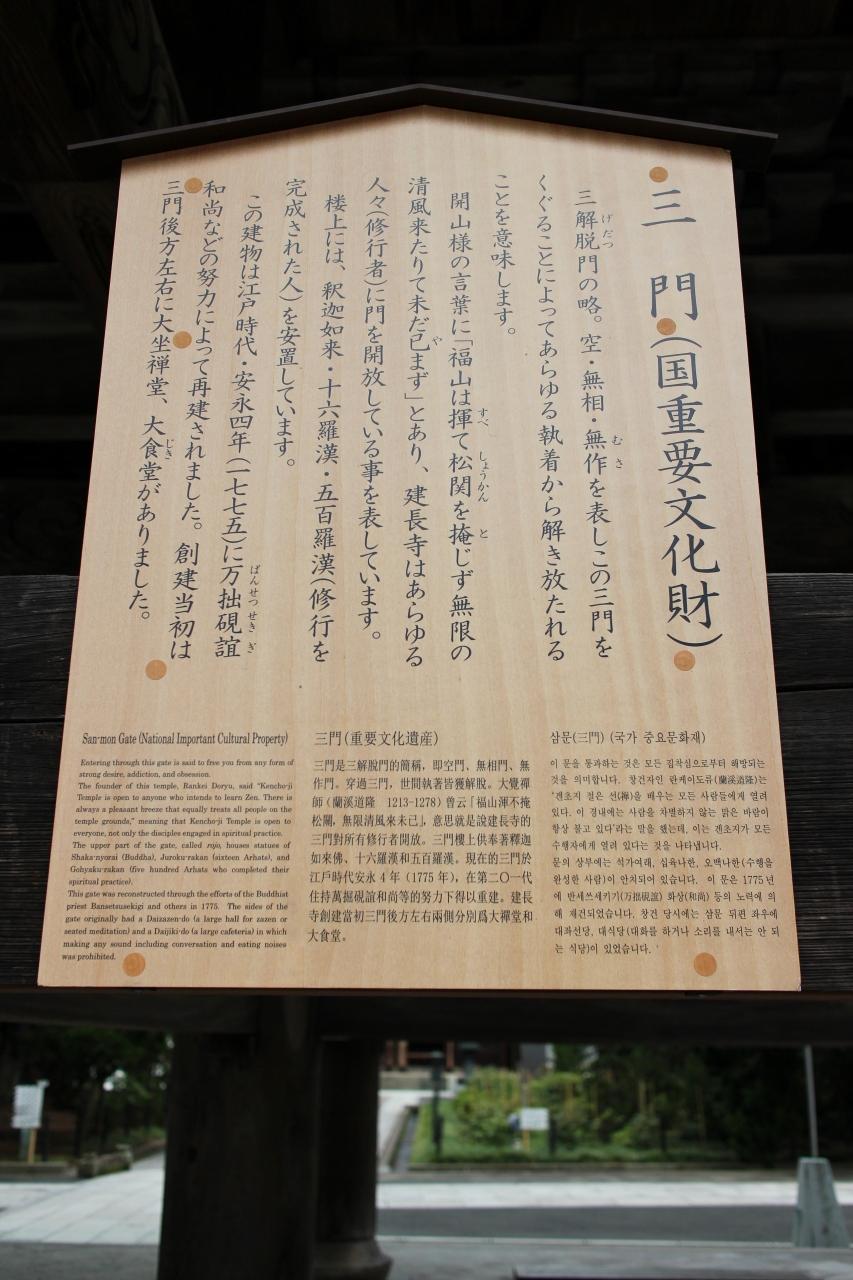 三門(国重要文化財)
三解脱門の略。空・無相・無作を表しこの三門を
くぐることによってあらゆる執着から解き放たれる
ことを意味します。
開山様の言葉に「福山は揮て松関を掩じず無限の
清風来たりて未だ已まず」とあり、建長寺はあらゆる
人々(修行者)に門を開放している事を表しています。
楼上には、釈迦如来・十六羅漢・五百羅漢(修行を
完成された人)を安置しています。
この建物は江戸時代・安永四年(一七七五)に万拙硯誼
和尚などの努力によって再建されました。創建当初は
三門後方左右に大坐禅堂、大食堂がありました。
San-mon Gate (National Important Cultural Property)
Entering through this gate is said to free you from any form of
strong desire, addiction, and obsession.
The founder of this temple, Rankei Doryu, said "Kencho-ji
Temple is open to anyone who intends to learn Zen. There is
always a pleasant breeze that equally treats all people on the
temple grounds," meaning that Kencho-ji Temple is open to
everyone, not only the disciples engaged in spiritual practice.
The upper part of the gate, called rojo, houses statues of
Shaka-nyorai (Buddha), Juroku-rakan (sixteen Arhats), and
Gohyaku-rakan (five hundred Arhats who completed their
spiritual practice).
This gate was reconstructed through the efforts of the Buddhist
priest Bansetsusekigi and others in 1775. The sides of the
gate originally had a Daizazen-do (a large hall for zazen or
seated meditation) and a Daijiki-do (a large cafeteria) in which
making any sound including conversation and eating noises
was prohibited.
三門(重要文化遺産)
三門是三解脫門的簡稱，即空門、無相門、無
作門。穿過三門，世間執著皆獲解脫。大覺禪
師（蘭溪道隆 1213-1278）曾云「福山渾不掩
松關，無限清風來未已」，意思就是說建長寺的
三門對所有修行者開放。三門樓上供奉著釋迦
如來佛、十六羅漢和五百羅漢。現在的三門於
江戶時代安永4年（1775年），在第二〇一代
住持萬掘硯誼和尚等的努力下得以重建。建長
寺創建當初三門後方左右兩側分別爲大禪堂和
大食堂。
삼문(三門) (국가 중요문화재)
이 문을 통과하는 것은 모든 집착심으로부터 해방되는
것을 의미합니다. 창건자인 란케이도류(蘭溪道隆)는
'겐초지 절은 선(禅)을 배우는 모든 사람들에게 열려
있다. 이 경내에는 사람을 차별하지 않는 맑은 바람이
항상 불고 있다'라는 말을 했는데, 이는 겐초지가 모든
수행자에게 열려 있다는 것을 나타냅니다.
문의 상부에는 석가여래, 십육나한, 오백나한(수행을
완성한 사람)이 안치되어 있습니다. 이 문은 1775년
에 반세쓰세키기(万拙硯誼) 화상(和尚) 등의 노력에 의
해 재건되었습니다. 창건 당시에는 삼문 뒤편 좌우에
대좌선당, 대식당(대화를 하거나 소리를 내서는 안 되
는 식당)이 있었습니다.